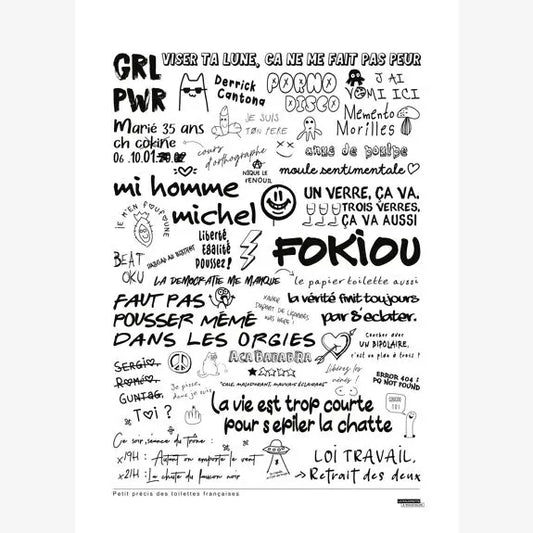 GRL
PWR
VISER TA LUNE, ÇA NE ME FAIT PAS PEUR
Derrick
Cantona
PORNO
DISCO
J'AI
VOMI ICI
Marié 35 ans
ch còkine
06.10.01.
JE SUIS
TON PERE
Memento
Morilles
cours
d'orthographe
NIQUE LE
FENOUIL
anus de poulpe
moule sentimentale
mi homme
michel
UN VERRE, ÇA VA.
TROIS VERRES,
ÇA VA AUSSI
JE M'EN FOUFOUNE
Liberté
Egalité
Poussez!
FOKIOU
BEAT
OKU
LA DEMOCRATIE ME MANQUE
le papier toilette aussi
FAUT PAS
POUSSER MÉMÉ
DANS LES ORGIES
XAVIER
DUPONT DE LIGONNES
WAS HERE!
la vérité finit toujours
par s'éclater.
Coucher avec
UN BIPOLAIRE,
c'est un plan à trois?
ACABABABRA
SERGIO,
ROMÉO,
GUNTAG,
TOI?
Je pisse,
donc je suis
"SALE, MALODORANT, MAUVAIS ÉCLAIRAGE"
Libérez les
nénés!
ERROR 404:
PQ NOT FOUND
la vie est trop courte
pour s'epiler la chatte
Ce soir, séance du trône:
x19H: Autant on emporte le vent
x21H: La chute du faucon noir
LOI TRAVAIL,
Retrait des deux
Petit précis des toilettes françaises